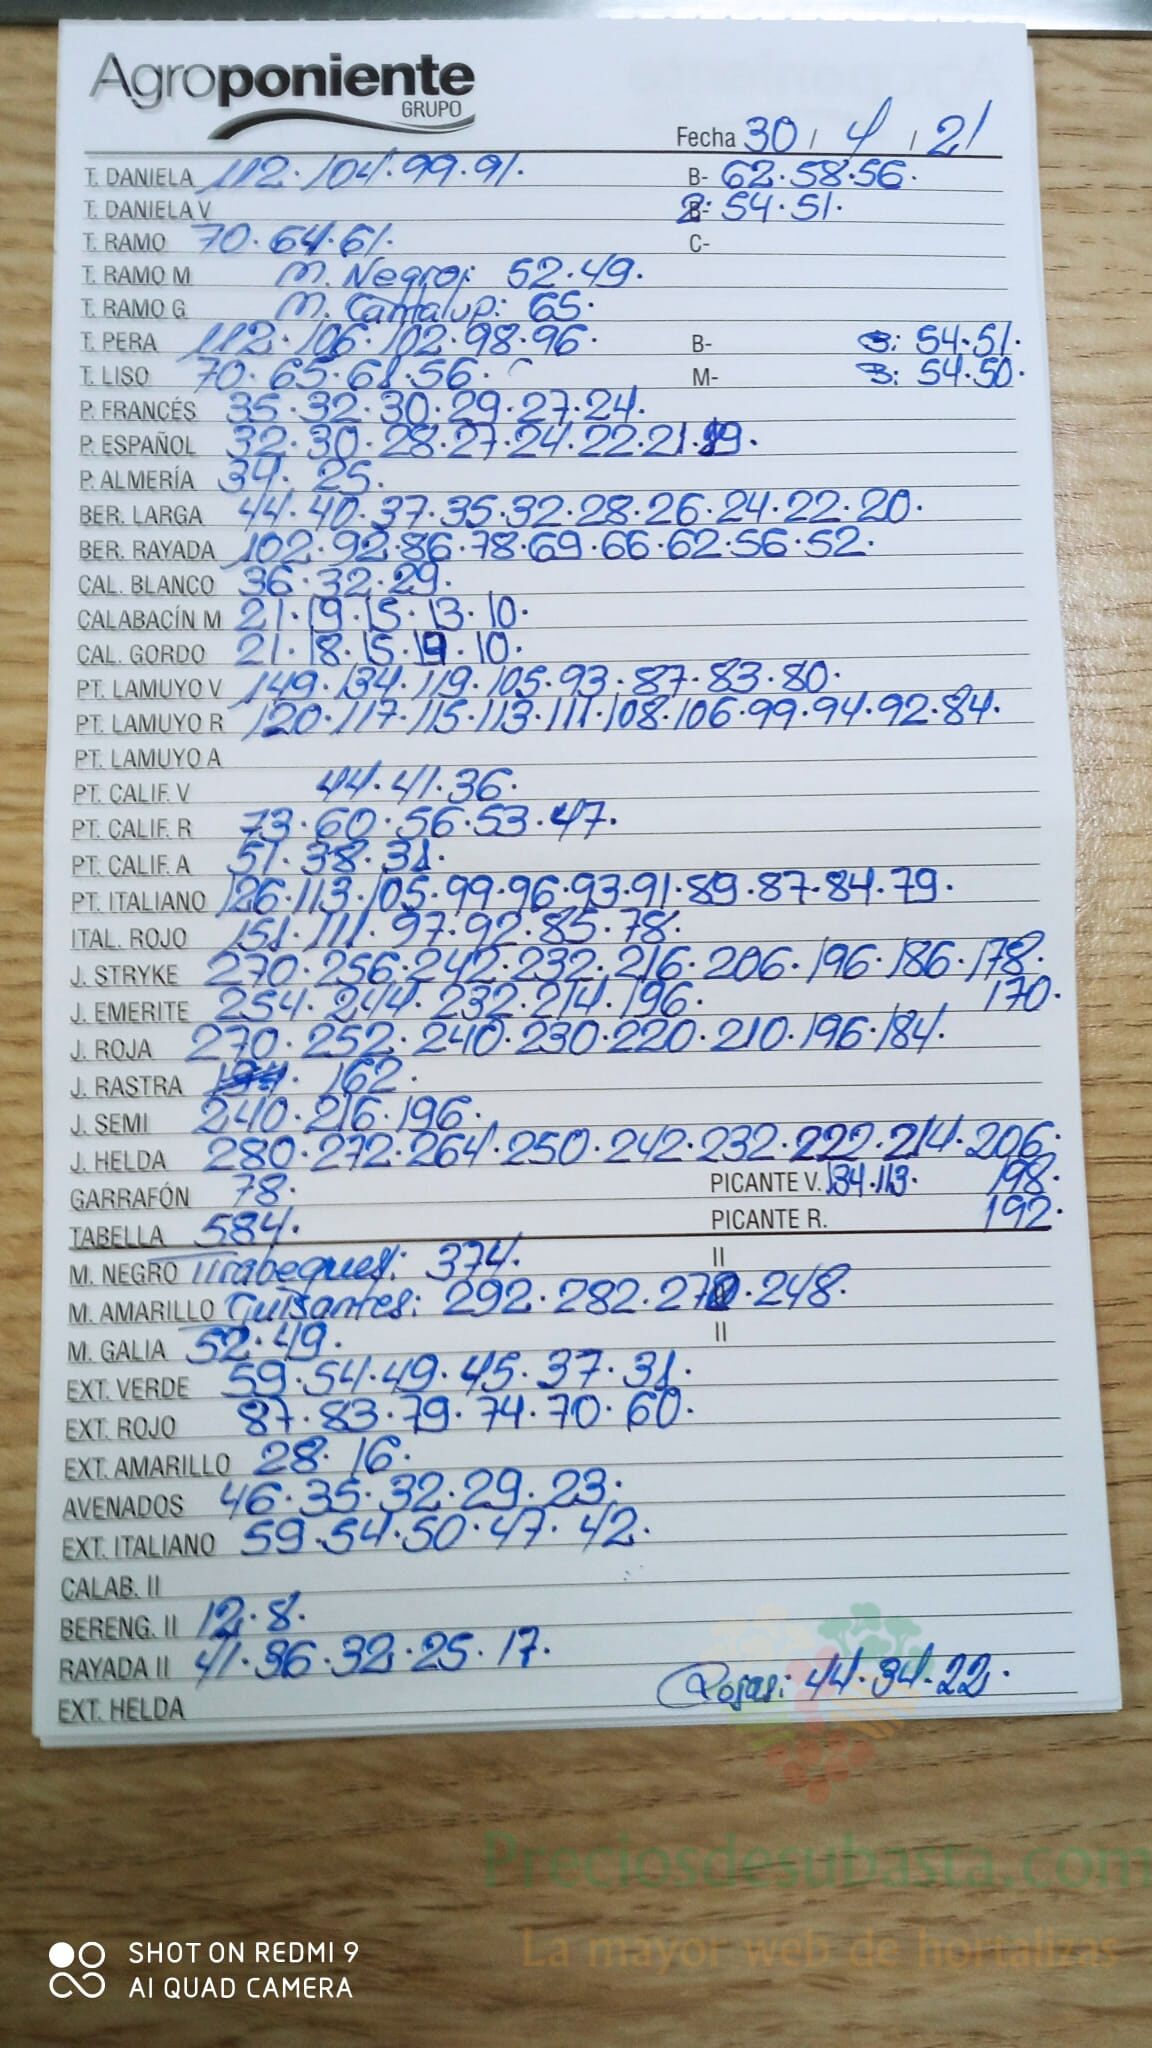 Agroponiente
GRUPO
Fecha 30 / 4 / 21
T. DANIELA 112. 104. 99. 91. B- 62. 58. 56.
T. DANIELA V 2: 54. 51.
T. RAMO 70. 64. 61. C-
T. RAMO M M. Negro: 52. 49.
T. RAMO G M. Cantalup: 65.
T. PERA 112. 106. 102. 98. 96. B- B: 54. 51.
T. LISO 70. 65. 61. 56. M- B: 54. 50.
P. FRANCÉS 35. 32. 30. 29. 27. 24.
P. ESPAÑOL 32. 30. 28. 27. 24. 22. 21. 19.
P. ALMERÍA 34. 25.
BER. LARGA 44. 40. 37. 35. 32. 28. 26. 24. 22. 20.
BER. RAYADA 102. 92. 86. 78. 69. 66. 62. 56. 52.
CAL. BLANCO 36. 32. 29.
CALABACÍN M 21. 19. 15. 13. 10.
CAL. GORDO 21. 18. 15. 10.
PT. LAMUYO V 149. 134. 119. 105. 93. 87. 83. 80.
PT. LAMUYO R 120. 117. 115. 113. 111. 108. 106. 99. 94. 92. 84.
PT. LAMUYO A
PT. CALIF. V 44. 41. 36.
PT. CALIF. R 73. 60. 56. 53. 47.
PT. CALIF. A 51. 38. 31.
PT. ITALIANO 126. 113. 105. 99. 96. 93. 91. 89. 87. 84. 79.
ITAL. ROJO 151. 111. 97. 92. 85. 78.
J. STRYKE 270. 256. 242. 232. 216. 206. 196. 186. 178.
J. EMERITE 254. 244. 232. 214. 196. 170.
J. ROJA 270. 252. 240. 230. 220. 210. 196. 184.
J. RASTRA 162.
J. SEMI 240. 216. 196.
J. HELDA 280. 272. 264. 250. 242. 232. 222. 214. 206.
GARRAFÓN 78. PICANTE V. 134. 113. 198.
TABELLA 584. PICANTE R. 192.
M. NEGRO Tirabeques: 374. II
M. AMARILLO Guisantes: 292. 282. 270. 248.
M. GALIA 52. 49. II
EXT. VERDE 59. 54. 49. 45. 37. 31.
EXT. ROJO 87. 83. 79. 74. 70. 60.
EXT. AMARILLO 28. 16.
AVENADOS 46. 35. 32. 29. 23.
EXT. ITALIANO 59. 54. 50. 47. 42.
CALAB. II
BERENG. II 12. 8.
RAYADA II 41. 36. 32. 25. 17.
EXT. HELDA Rojas: 44. 34. 22.
Preciosdesubasta.com
La mayor web de hortalizas
SHOT ON REDMI 9
AI QUAD CAMERA